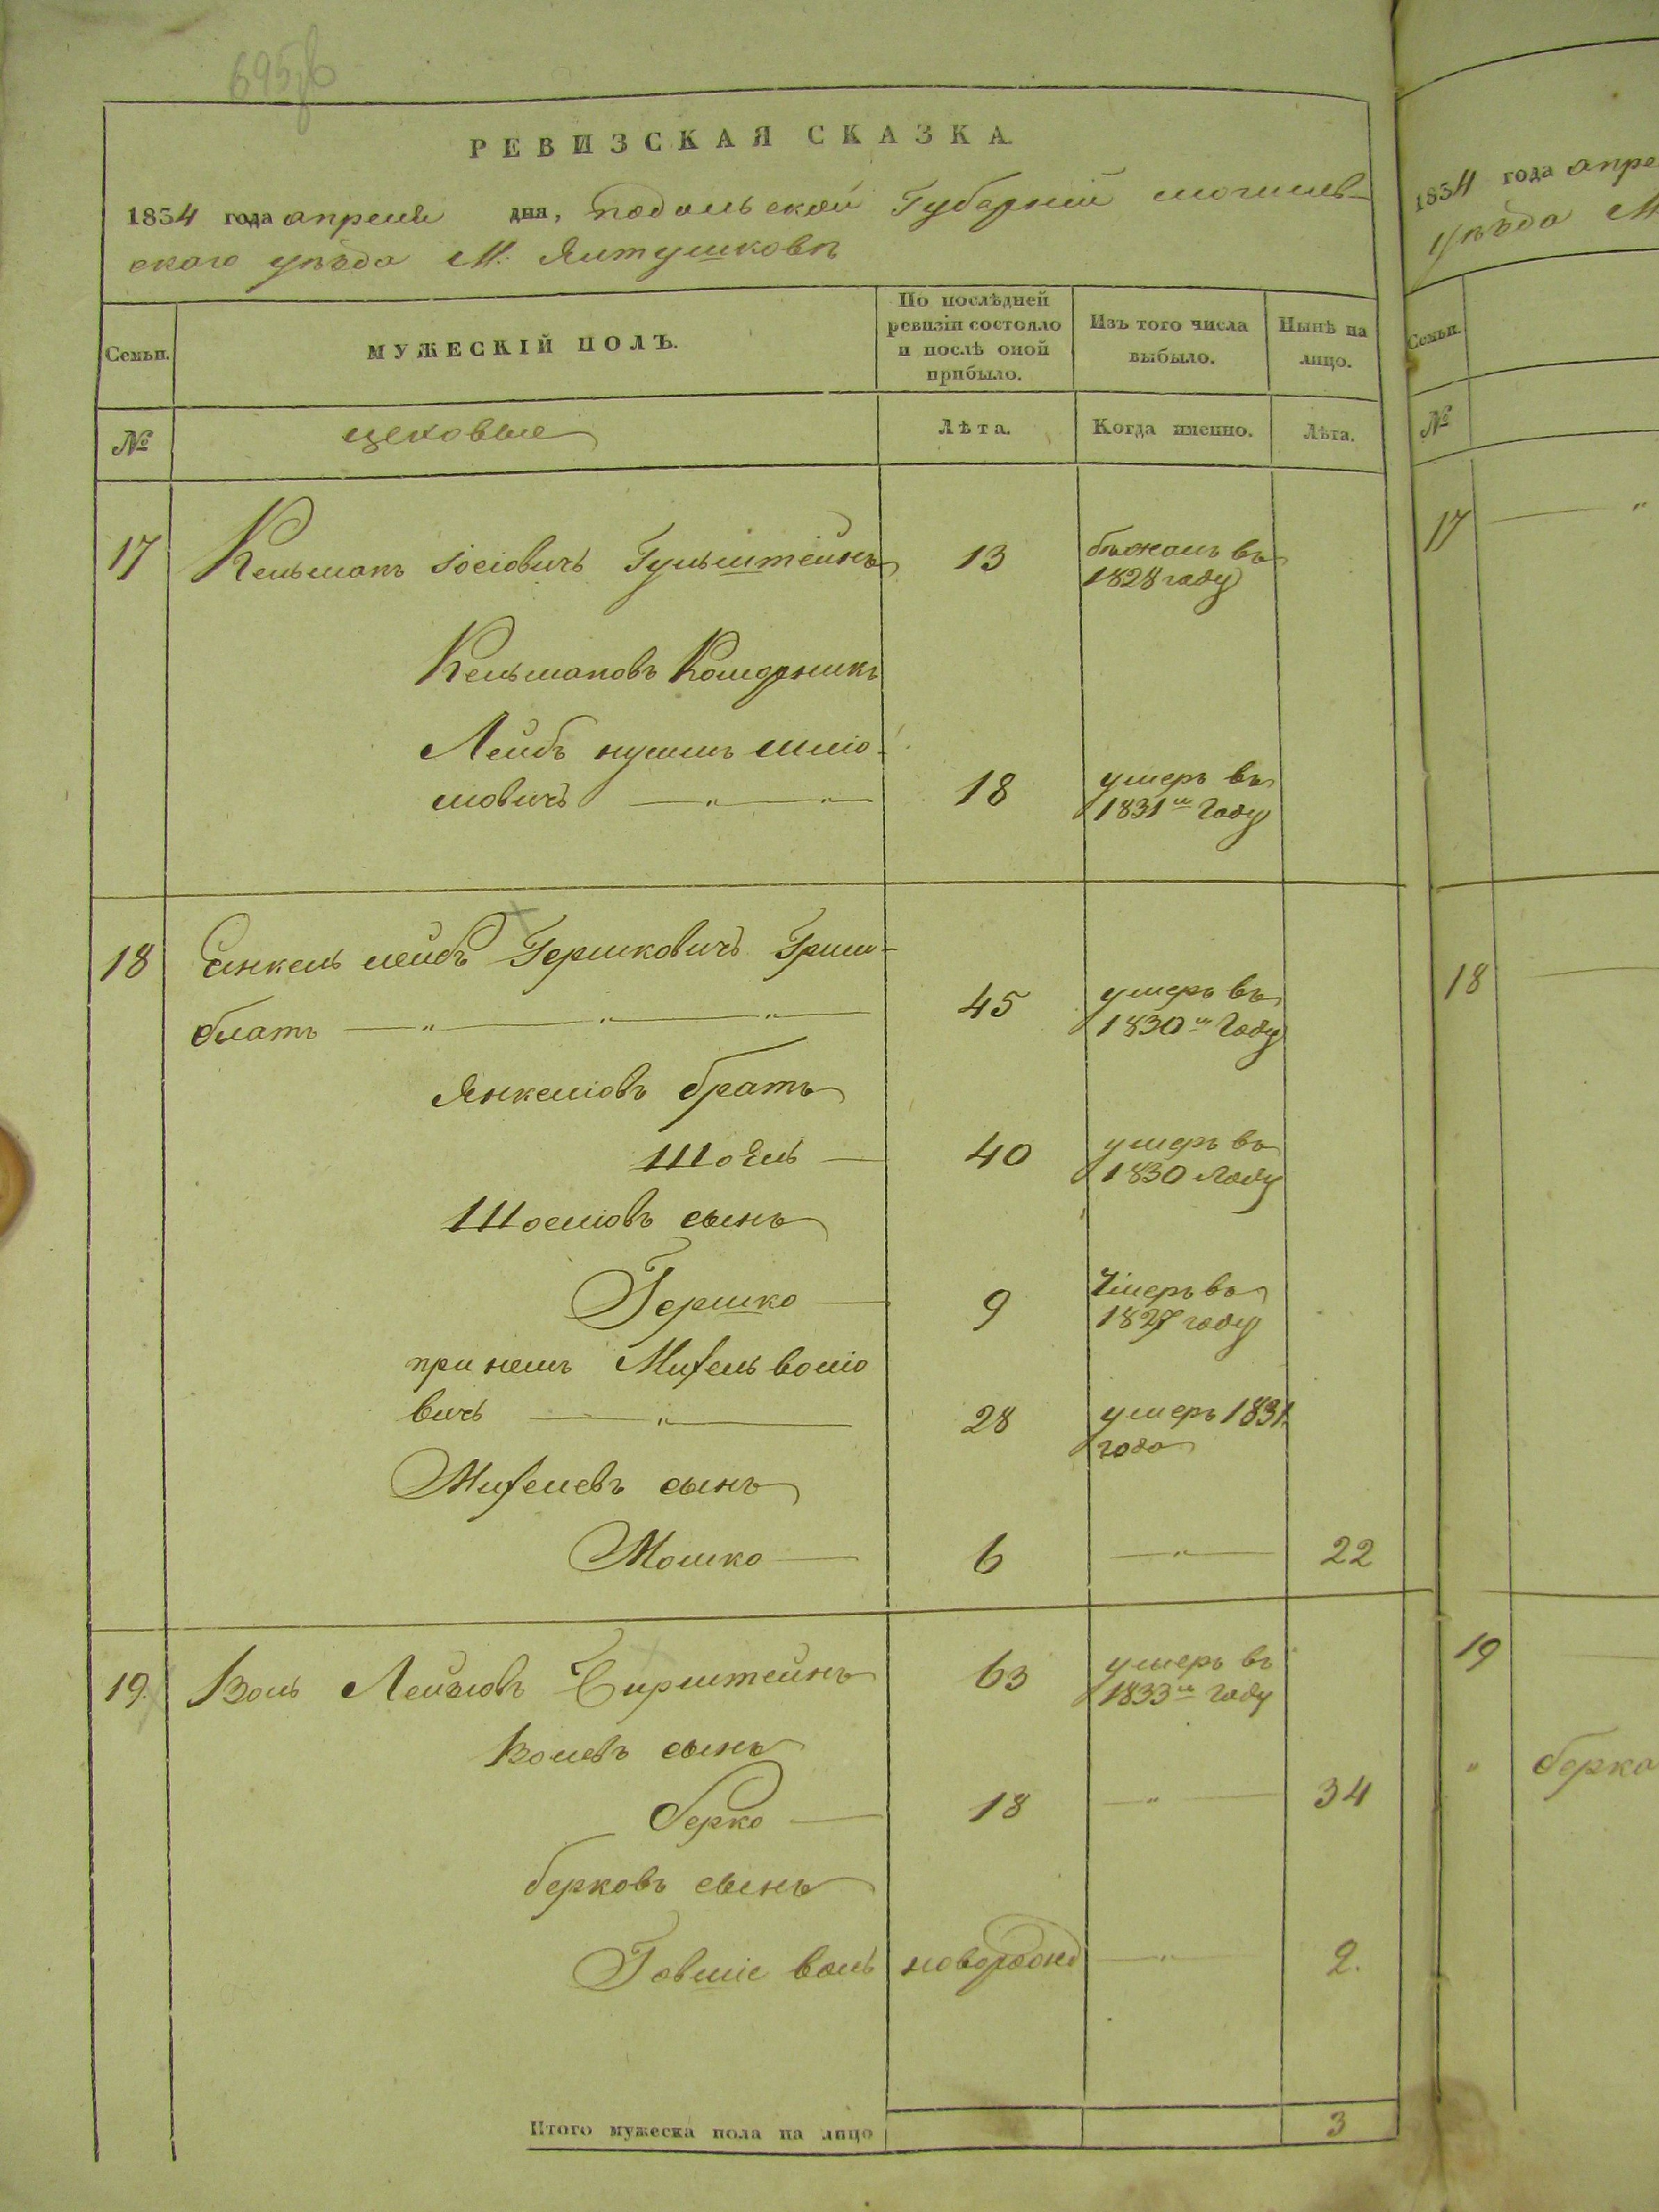 695
РЕВИЗСКАЯ СКАЗКА
1834 года апреля дня, подольской Губернии могилев-
ского уѣзда М. Ялтушковѣ
Семьи.
МУЖЕСКІЙ ПОЛЪ.
По послѣдней ревизіи состояло и послѣ оной прибыло.
Изъ того числа выбыло.
Нынѣ на лицо.
№
цеховые
Лѣта.
Когда именно.
Лѣта.
17 Кельманъ Іосіовичъ Гульштейнъ 13 бѣжалъ въ
1828 году
Кельмановъ Коморникъ
Лейбъ шліо-
мовичъ — " — " — 18 умеръ въ
1831м Году
18 Янкель лейбъ Гершковичъ Грин-
блатъ — " — " — " — 45 умеръ въ
1830м Году
Янкеліовъ братъ
Шоель — 40 умеръ въ
1830 Году
Шоеліовъ сынъ
Гершко — 9 Умеръ въ
1827 году
при немъ Михель воліо
вичъ — " — 28 умеръ 1831
года
Михелевъ сынъ
Мошко — 6 — " — 22
19. Воль Бирштейнъ 63 умеръ въ
1833м Году
Волевъ сынъ
берко — 18 — " — 34
берковъ сынъ
Говшіе воль новорожд — " — 2.
Итого мужеска пола на лицо 3
1834 года апре
уѣзда М
Семьи.
№
17 — "
18 —
19 —
" берка